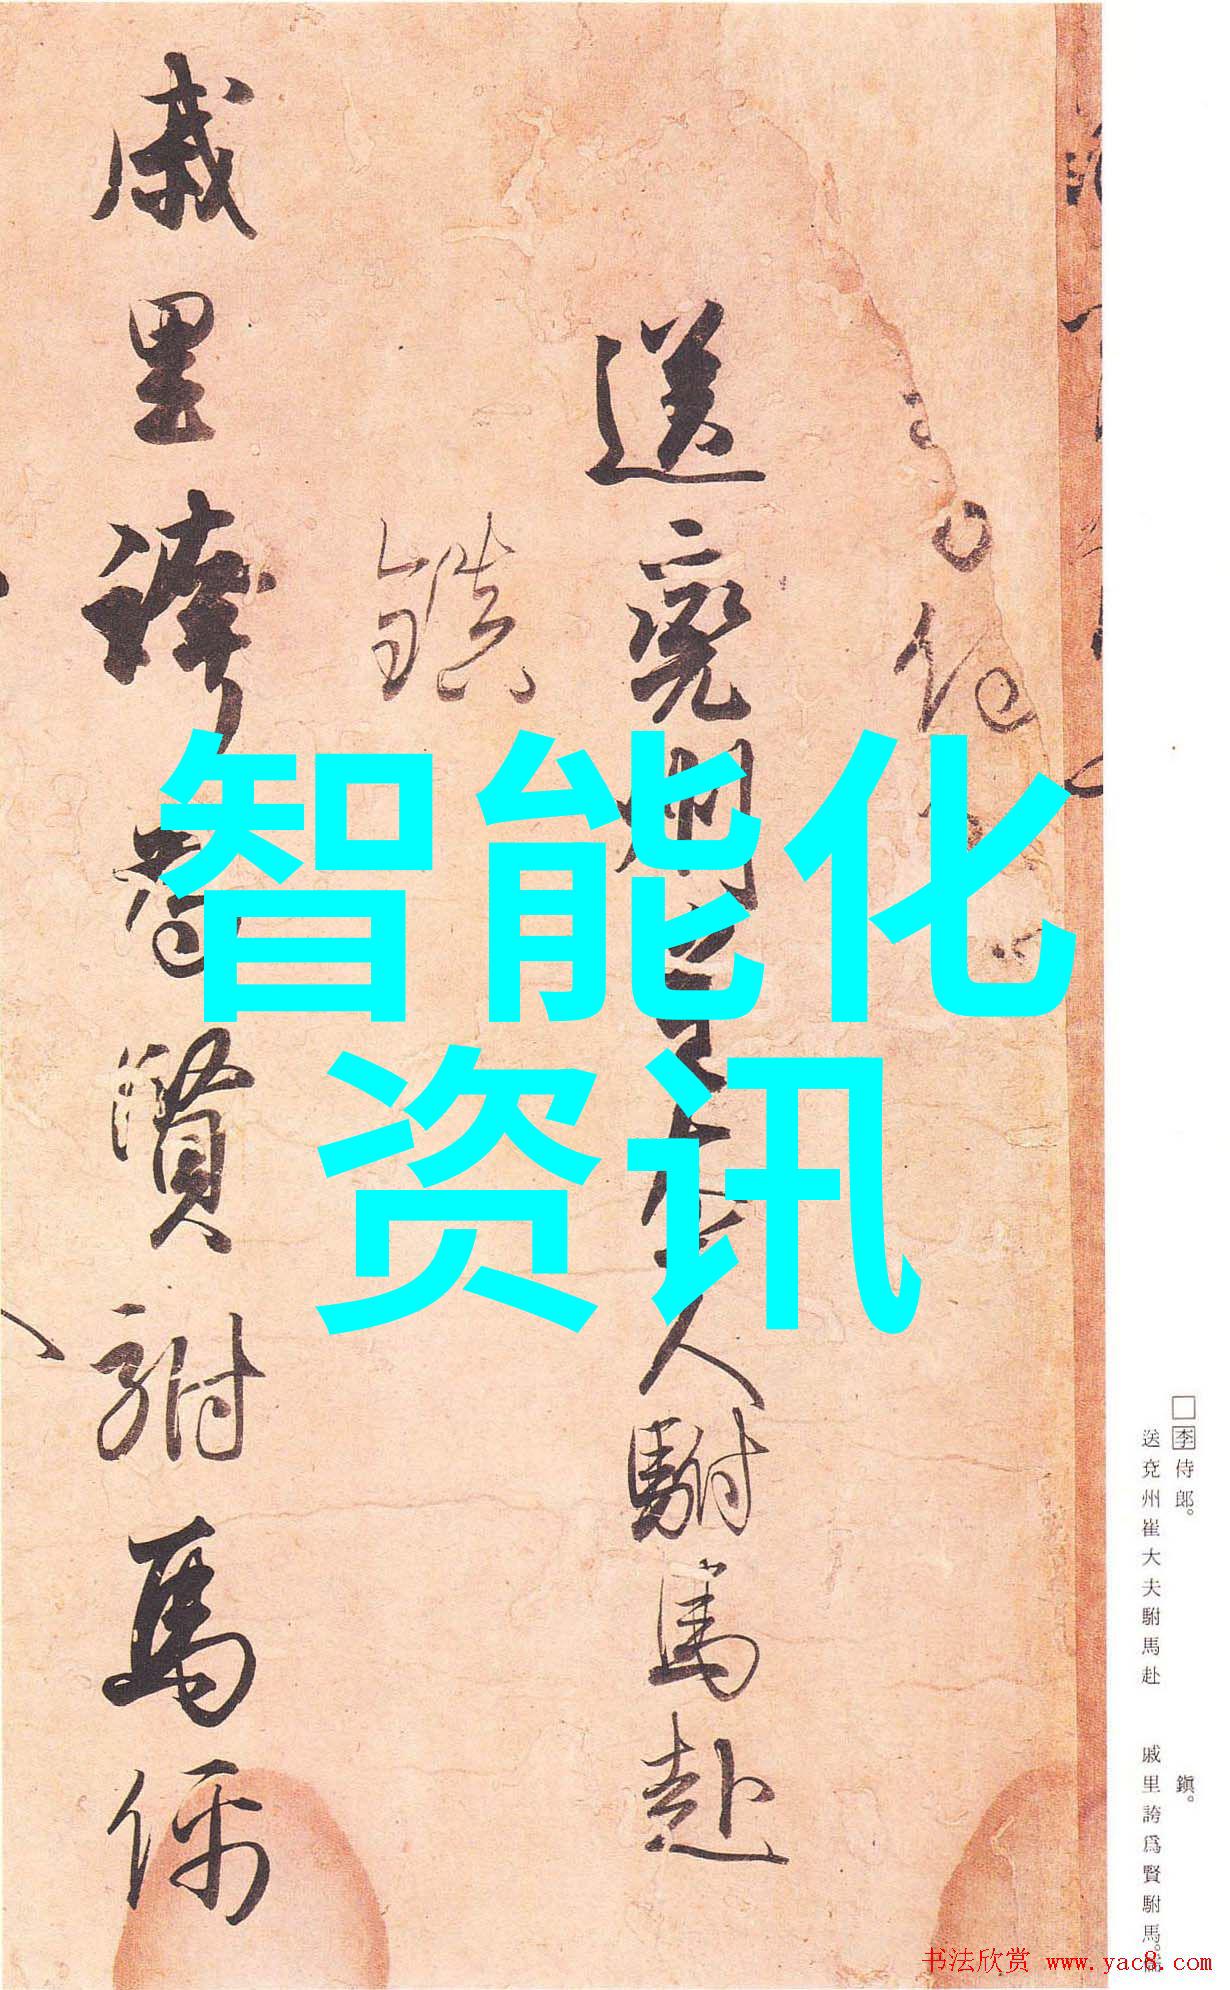 智能化
资讯
送兖州崔大夫駙馬赴
鎮
戚里誇爲賢駙馬儒
□李侍郎。
送兖州崔大夫駙馬赴
鎮。
戚里誇爲賢駙馬。
书法欣赏 www.yac8.com